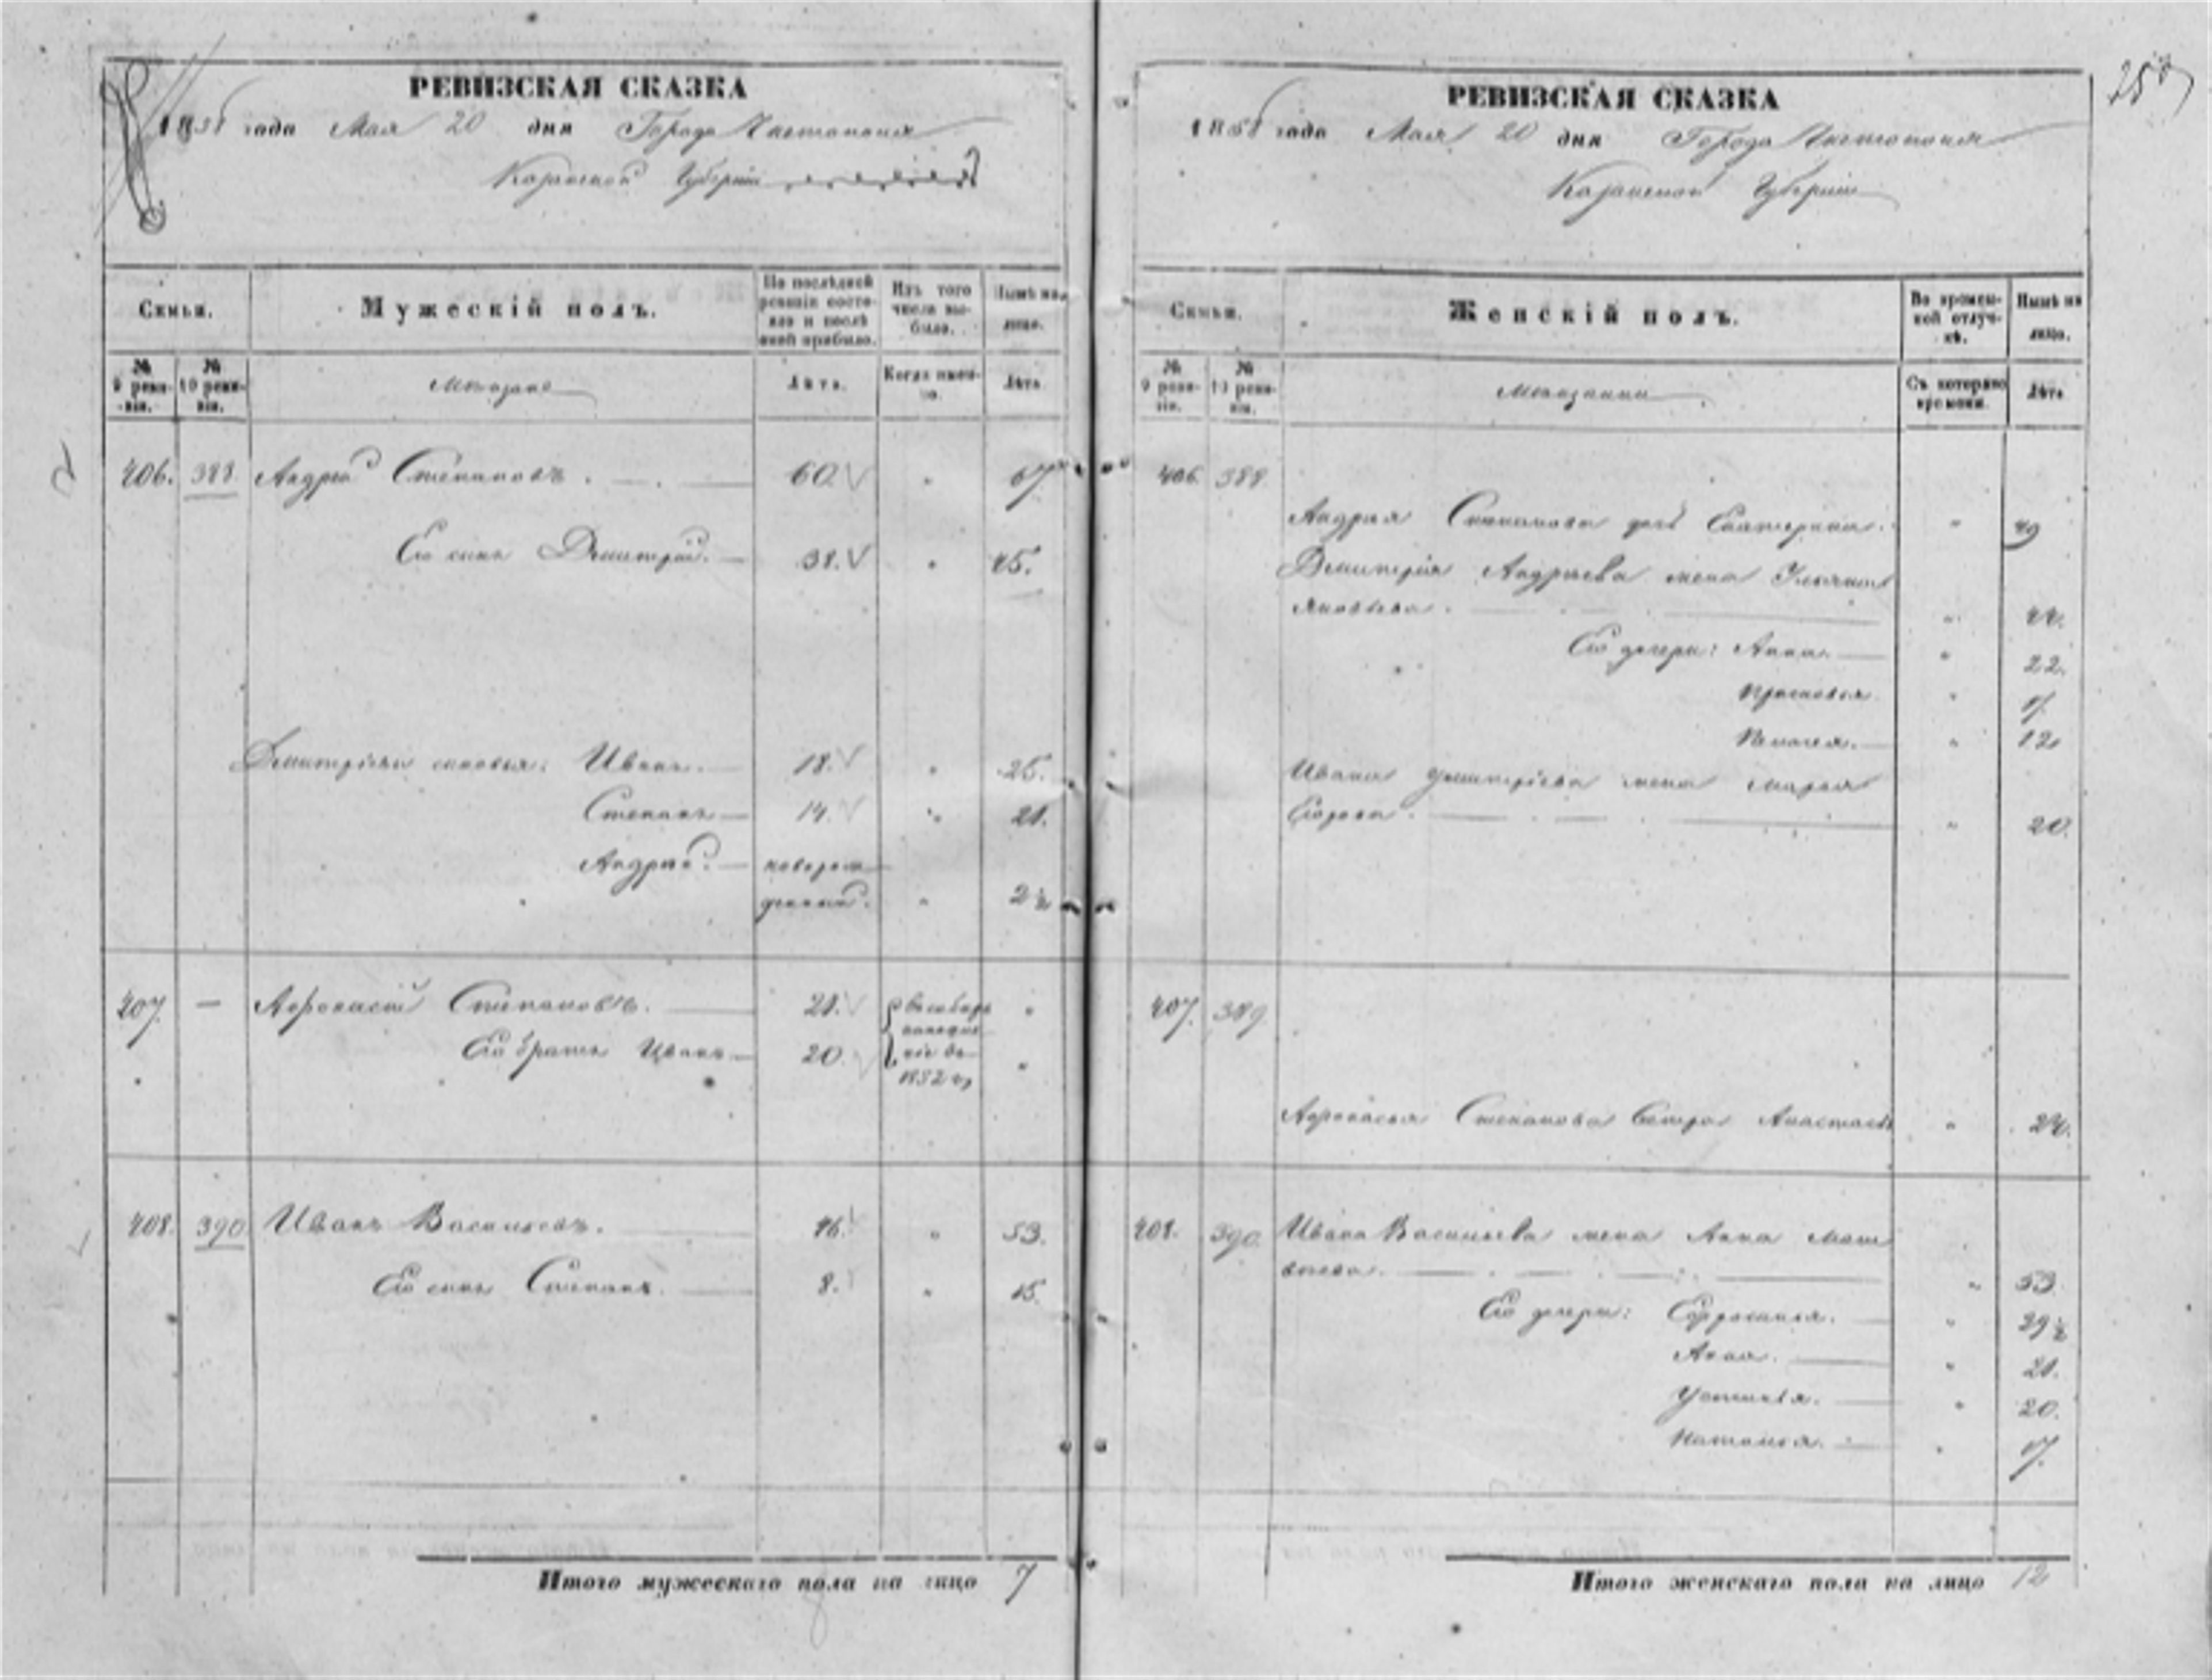 РЕВИЗСКАЯ СКАЗКА
1858 года Мая 20 дня Города Чистополя
Казанской Губерніи
Семьи.
Мужескій полъ.
По послѣдней ревизіи состояло и послѣ оной прибыло.
Изъ того числа выбыло.
Нынѣ на лицо.
№ 9 ревизіи.
№ 10 ревизіи.
Мещане
Лѣта.
Когда именно.
Лѣта
406. 388. Андрей Степановъ. 60. " 67.
Его сынъ Дмитрій. 38. " 45.
Дмитріевы сыновья: Иванъ. 18. " 25.
Степанъ 14. " 21.
Андрей. новорож
денный. " 2½
407. — Афонасій Степановъ. 21. "
Его братъ Иванъ 20. "
1852 г.
408. 390 Иванъ Васильевъ. 46. " 53.
Его сынъ Степанъ. 8. " 15.
Итого мужескаго пола на лицо 7
8
РЕВИЗСКАЯ СКАЗКА
1858 года Мая 20 дня Города Чистополя
Казанской Губерніи
Семьи.
Женскій полъ.
Во временной отлучкѣ.
Нынѣ на лицо.
№ 9 ревизіи.
№ 10 ревизіи.
Мещанки
Съ котораго времени.
Лѣта
406. 388.
Андрея Степанова дочь Екатерина. " 49
Дмитрія Андреева жена
Яковлева. " 44.
Его дочери: Анна. " 22.
Прасковья. " 17.
Пелагея. " 12
Ивана Дмитріева жена Марья
" 20.
407. 389.
Афонасья Степанова Сестра Анастасья " 24.
408. 390. Ивана Васильева жена Анна Мат
веева. " 53.
Его дочери: Ефросинья. " 29½
Анна. " 21.
Устинья. " 20.
Наталья. " 17.
Итого женскаго пола на лицо 12